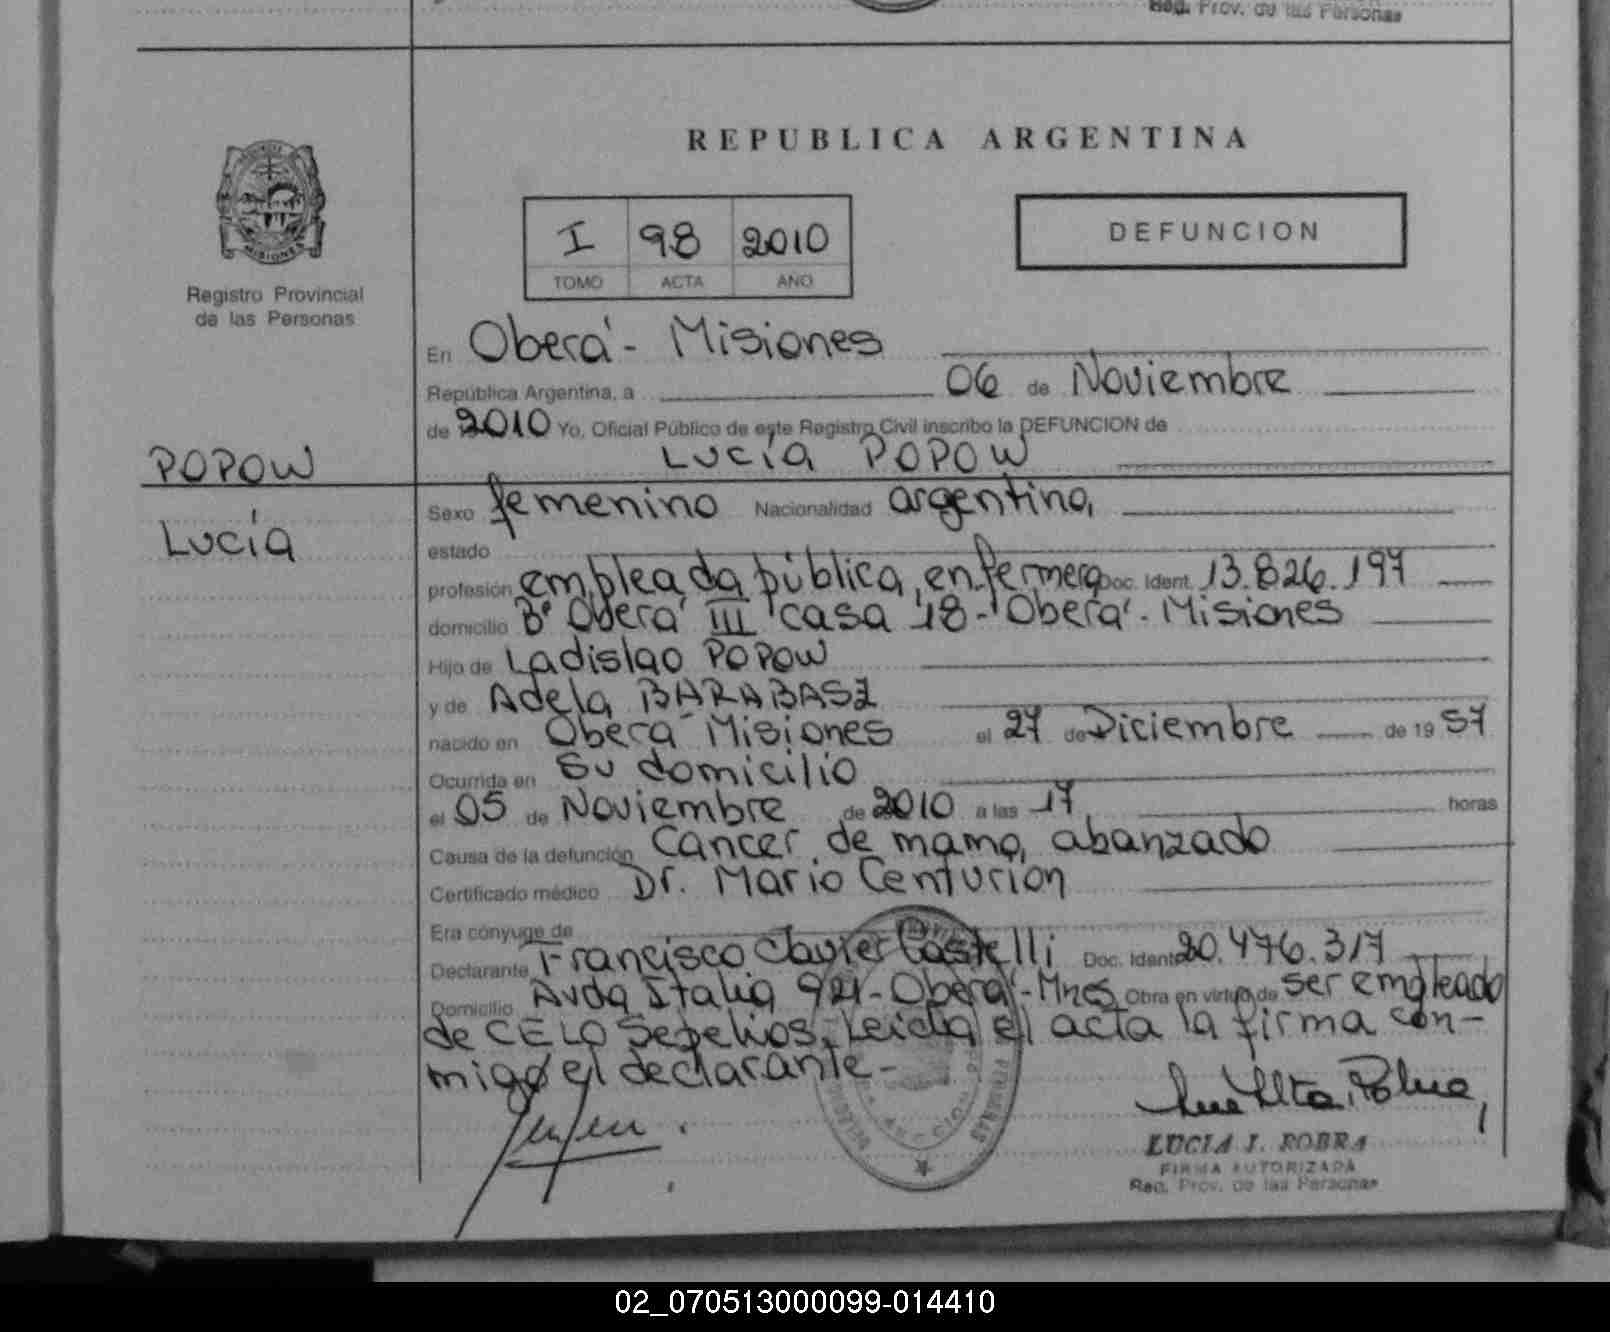 Reg. Prov. de las Personas
REPUBLICA ARGENTINA
I 98 2010
TOMO ACTA AÑO
DEFUNCION
MISIONES
Registro Provincial
de las Personas
En Oberá - Misiones
República Argentina, a 06 de Noviembre
de 2010 Yo, Oficial Público de este Registro Civil inscribo la DEFUNCION de
Lucía POPOW
POPOW
Lucía
Sexo femenino Nacionalidad argentina,
estado
profesión empleada pública, enfermera Doc. Ident. 13.826.197
domicilio Bº Oberá III casa 18 - Oberá - Misiones
Hijo de Ladislao POPOW
y de Adela BARABASZ
nacido en Oberá Misiones el 27 de Diciembre de 19 57
Ocurrida en su domicilio
el 05 de Noviembre de 2010 a las 17 horas
Causa de la defunción Cancer de mama, abanzado
Certificado médico Dr. Mario Centurion
Era cónyuge de
Declarante Francisco Javier Castelli Doc. Ident. 20.476.317
Domicilio Avda Italia 921 - Oberá - Mnes Obra en virtud de ser empleado
de CELO Sepelios. Leida el acta la firma con-
migo el declarante -
LUCIA I. ROBRA
FIRMA AUTORIZADA
Reg. Prov. de las Personas
02_070513000099-014410